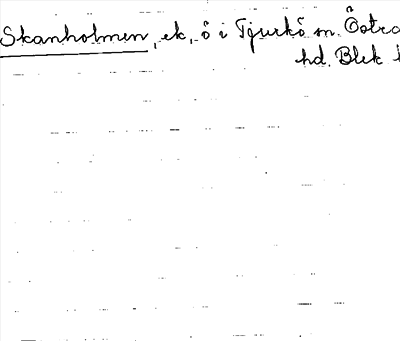 Skanholmen, ek, ö i Tjurkö sn. Östra
hd. Blek